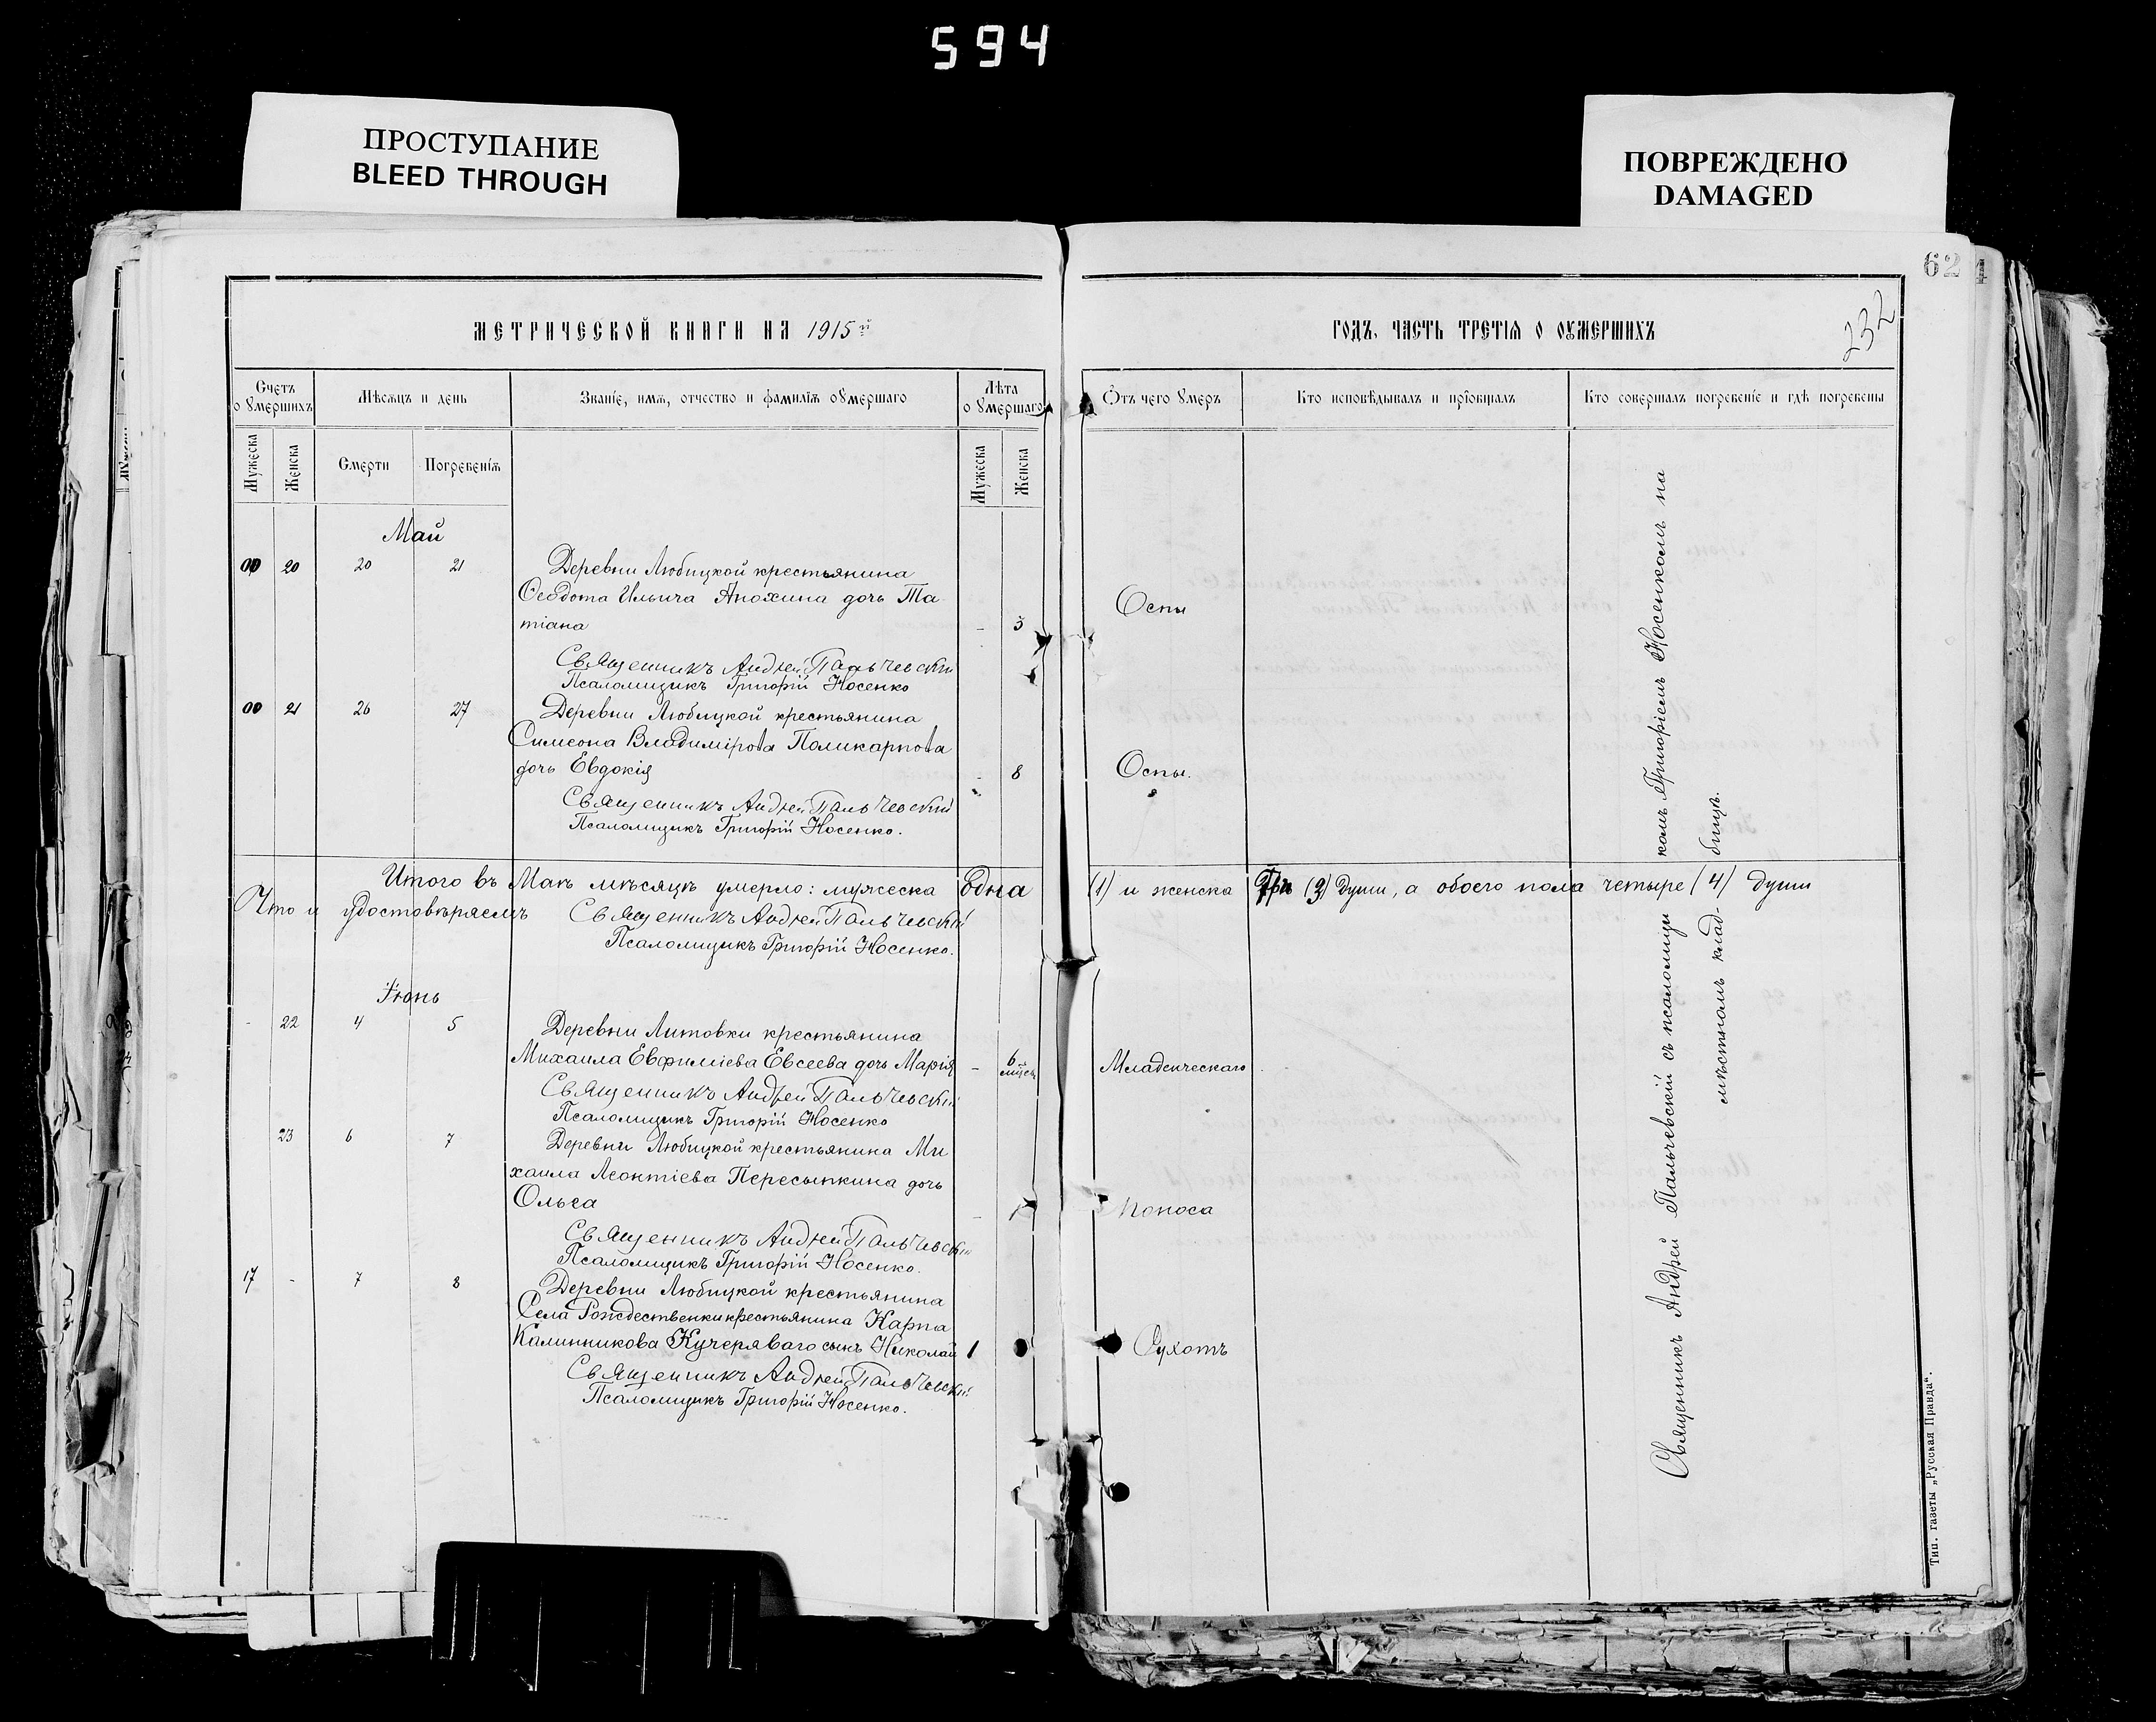 594
ПРОСТУПАНИЕ
BLEED THROUGH
ПОВРЕЖДЕНО
DAMAGED
62
232
МЕТРИЧЕСКОЙ КНИГИ НА 1915й
Счетъ
оумершихъ
Мѣсяцъ и день
Званіе, имя, отчество и фамилія оумершаго
Лѣта
оумершаго
Мужеска
Женска
Смерти
Погребенія
Мужеска
Женска
Май
20 20 21 Деревни Любицкой крестьянина
Ѳеодота Ильича Анохина дочь Та-
тіана - 3
Священникъ Андрей Пальчевскій
Псаломщикъ Григорій Носенко
00 21 26 27 Деревни Любицкой крестьянина
Симеона Владимірова Поликарпова
дочь Евдокія - 8
Священникъ Андрей Пальчевскій
Псаломщикъ Григорій Носенко.
Итого въ Маѣ мѣсяцѣ умерло: мужеска одна
Что и удостовѣряемъ Священникъ Андрей Пальчевскій
Псаломщикъ Григорій Носенко.
Іюнь
- 22 4 5 Деревни Литовки крестьянина
Михаила Евфиміева Евсеева дочь Марія - 6 мѣсяц
Священникъ Андрей Пальчевскій
Псаломщикъ Григорій Носенко
23 6 7 Деревни Любицкой крестьянина Ми
хаила Леонтіева Пересыпкина дочь
Ольга - 1
Священникъ Андрей Пальчевскій
Псаломщикъ Григорій Носенко.
17 - 7 8 Деревни Любицкой крестьянина
Села Рождественки крестьянина Карпа
Калинникова Кучеряваго сынъ Николай 1
Священникъ Андрей Пальчевскій
Псаломщикъ Григорій Носенко.
ГОДЪ, ЧАСТЬ ТРЕТІЯ О ОУМЕРШИХЪ
Отъ чего умеръ
Кто исповѣдывалъ и пріобщалъ
Кто совершалъ погребеніе и гдѣ погребены
Оспы
Оспы.
(1) и женска три (3) души, а обоего пола четыре (4) души
Младенческаго
Поноса
Сухотъ
Священникъ Андрей Пальчевскій съ псаломщи
комъ Григоріемъ Носенкомъ на
мѣстномъ клад-
бищѣ.
Тип. газеты „Русская Правда“.